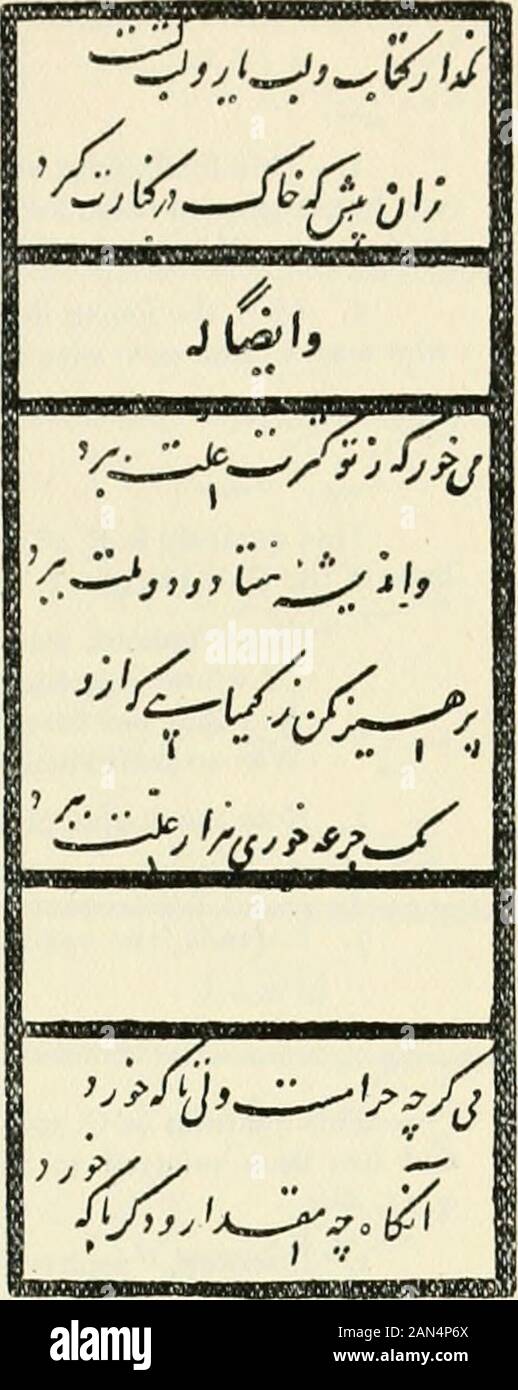 مگذار کتاب ولب یار ولب کشت
زان پیش که خاک در کنارت گیرد
وایضا له
می خور که ز تو کثرت علت ببرد
واندیشه هفتاد و دو ملت ببرد
پرهیز مکن ز کیمیایی که ازو
یک جرعه خوری هزار علت ببرد
می گرچه حرامست ولی تا که خورد
آنگاه چه مقدار و دگر با که خورد
alamy
Image ID: 2AN4P6X
www.alamy.com